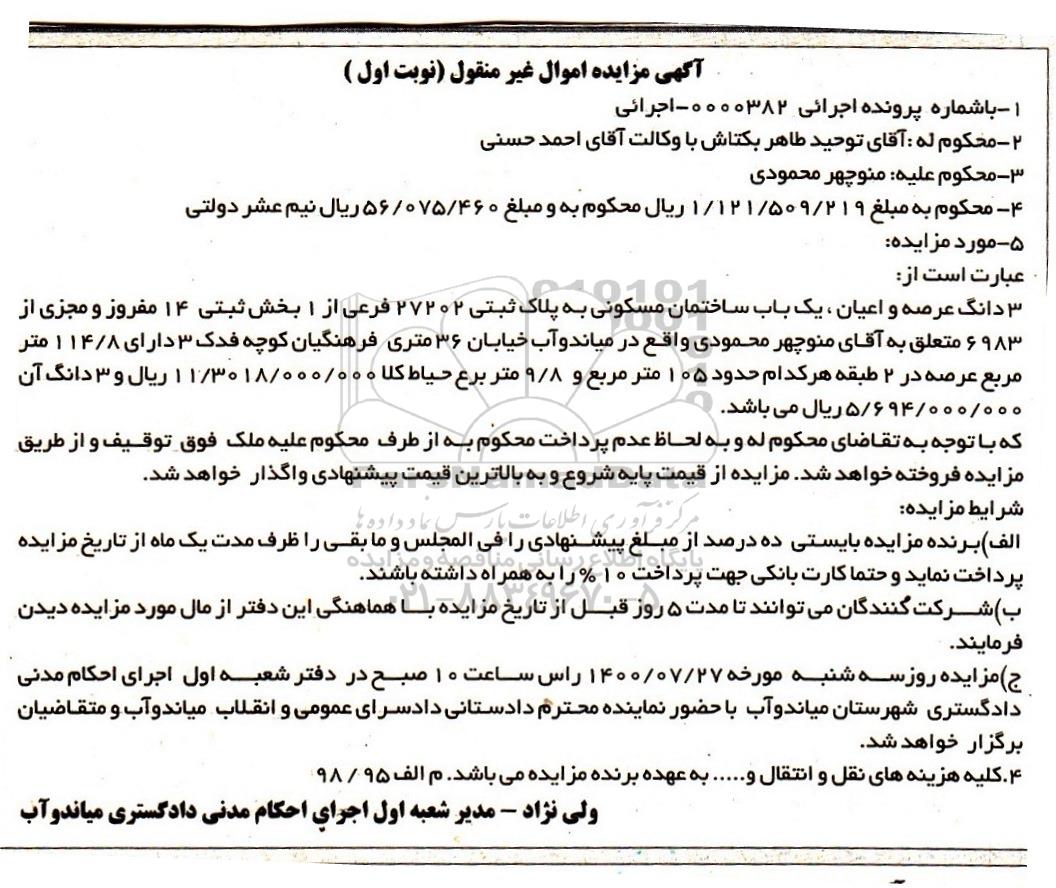 آگهی مزایده اموال غیر منقول (نوبت اول )
۱-باشماره پرونده اجرائی ۰۰۰۰۳۸۲-اجرائی
۲-محکوم له :آقای توحید طاهر بکتاش با وکالت آقای احمد حسنی
۳-محکوم علیه: منوچهر محمودی
۴- محکوم به مبلغ ۱/۱۲۱/۵۰۹/۲۱۹ ریال محکوم به و مبلغ ۵۶/۰۷۵/۴۶۰ ریال نیم عشر دولتی
۵-مورد مزایده:
عبارت است از:
۳ دانگ عرصه و اعیان ، یک باب ساختمان مسکونی به پلاک ثبتی ۲۷۲۰۲ فرعی از ۱ بخش ثبتی ۱۴ مفروز و مجزی از
۶۹۸۳ متعلق به آقای منوچهر محمودی واقع در میاندوآب خیابان ۳۶ متری فرهنگیان کوچه فدک ۳ دارای ۱۱۴/۸ متر
مربع عرصه در ۲ طبقه هرکدام حدود ۱۰۵ متر مربع و ۹/۸ متر برغ حیاط کلا ۱۱/۳۰۱۸/۰۰۰/۰۰۰ ریال و ۳ دانگ آن
۵/۶۹۴/۰۰۰/۰۰۰ ریال می باشد.
که با توجه به تقاضای محکوم له و به لحاظ عدم پرداخت محکوم به از طرف محکوم علیه ملک فوق توقیف و از طریق
مزایده فروخته خواهد شد. مزایده از قیمت پایه شروع و به بالاترین قیمت پیشنهادی واگذار خواهد شد.
شرایط مزایده:
الف)برنده مزایده بایستی ده درصد از مبلغ پیشنهادی را فی المجلس و ما بقی را ظرف مدت یک ماه از تاریخ مزایده
پرداخت نماید و حتما کارت بانکی جهت پرداخت ۱۰ % را به همراه داشته باشند.
ب)شرکت کنندگان می توانند تا مدت ۵ روز قبل از تاریخ مزایده با هماهنگی این دفتر از مال مورد مزایده دیدن
فرمایند.
ج)مزایده روزسه شنبه مورخه ۱۴۰۰/۰۷/۲۷ راس ساعت ۱۰ صبح در دفتر شعبه اول اجرای احکام مدنی
دادگستری شهرستان میاندوآب با حضور نماینده محترم دادستانی دادسرای عمومی و انقلاب میاندوآب و متقاضیان
برگزار خواهد شد.
۴.کلیه هزینه های نقل و انتقال و..... به عهده برنده مزایده می باشد. م الف ۹۵ / ۹۸
ولی نژاد - مدیر شعبه اول اجرای احکام مدنی دادگستری میاندوآب
ParsNamadData
مرکز فرآوری اطلاعات پارس نماد داده ها
پایگاه اطلاع رسانی مناقصه و مزایده
۰۲۱-۸۸۳۴۹۶۷۰-۵